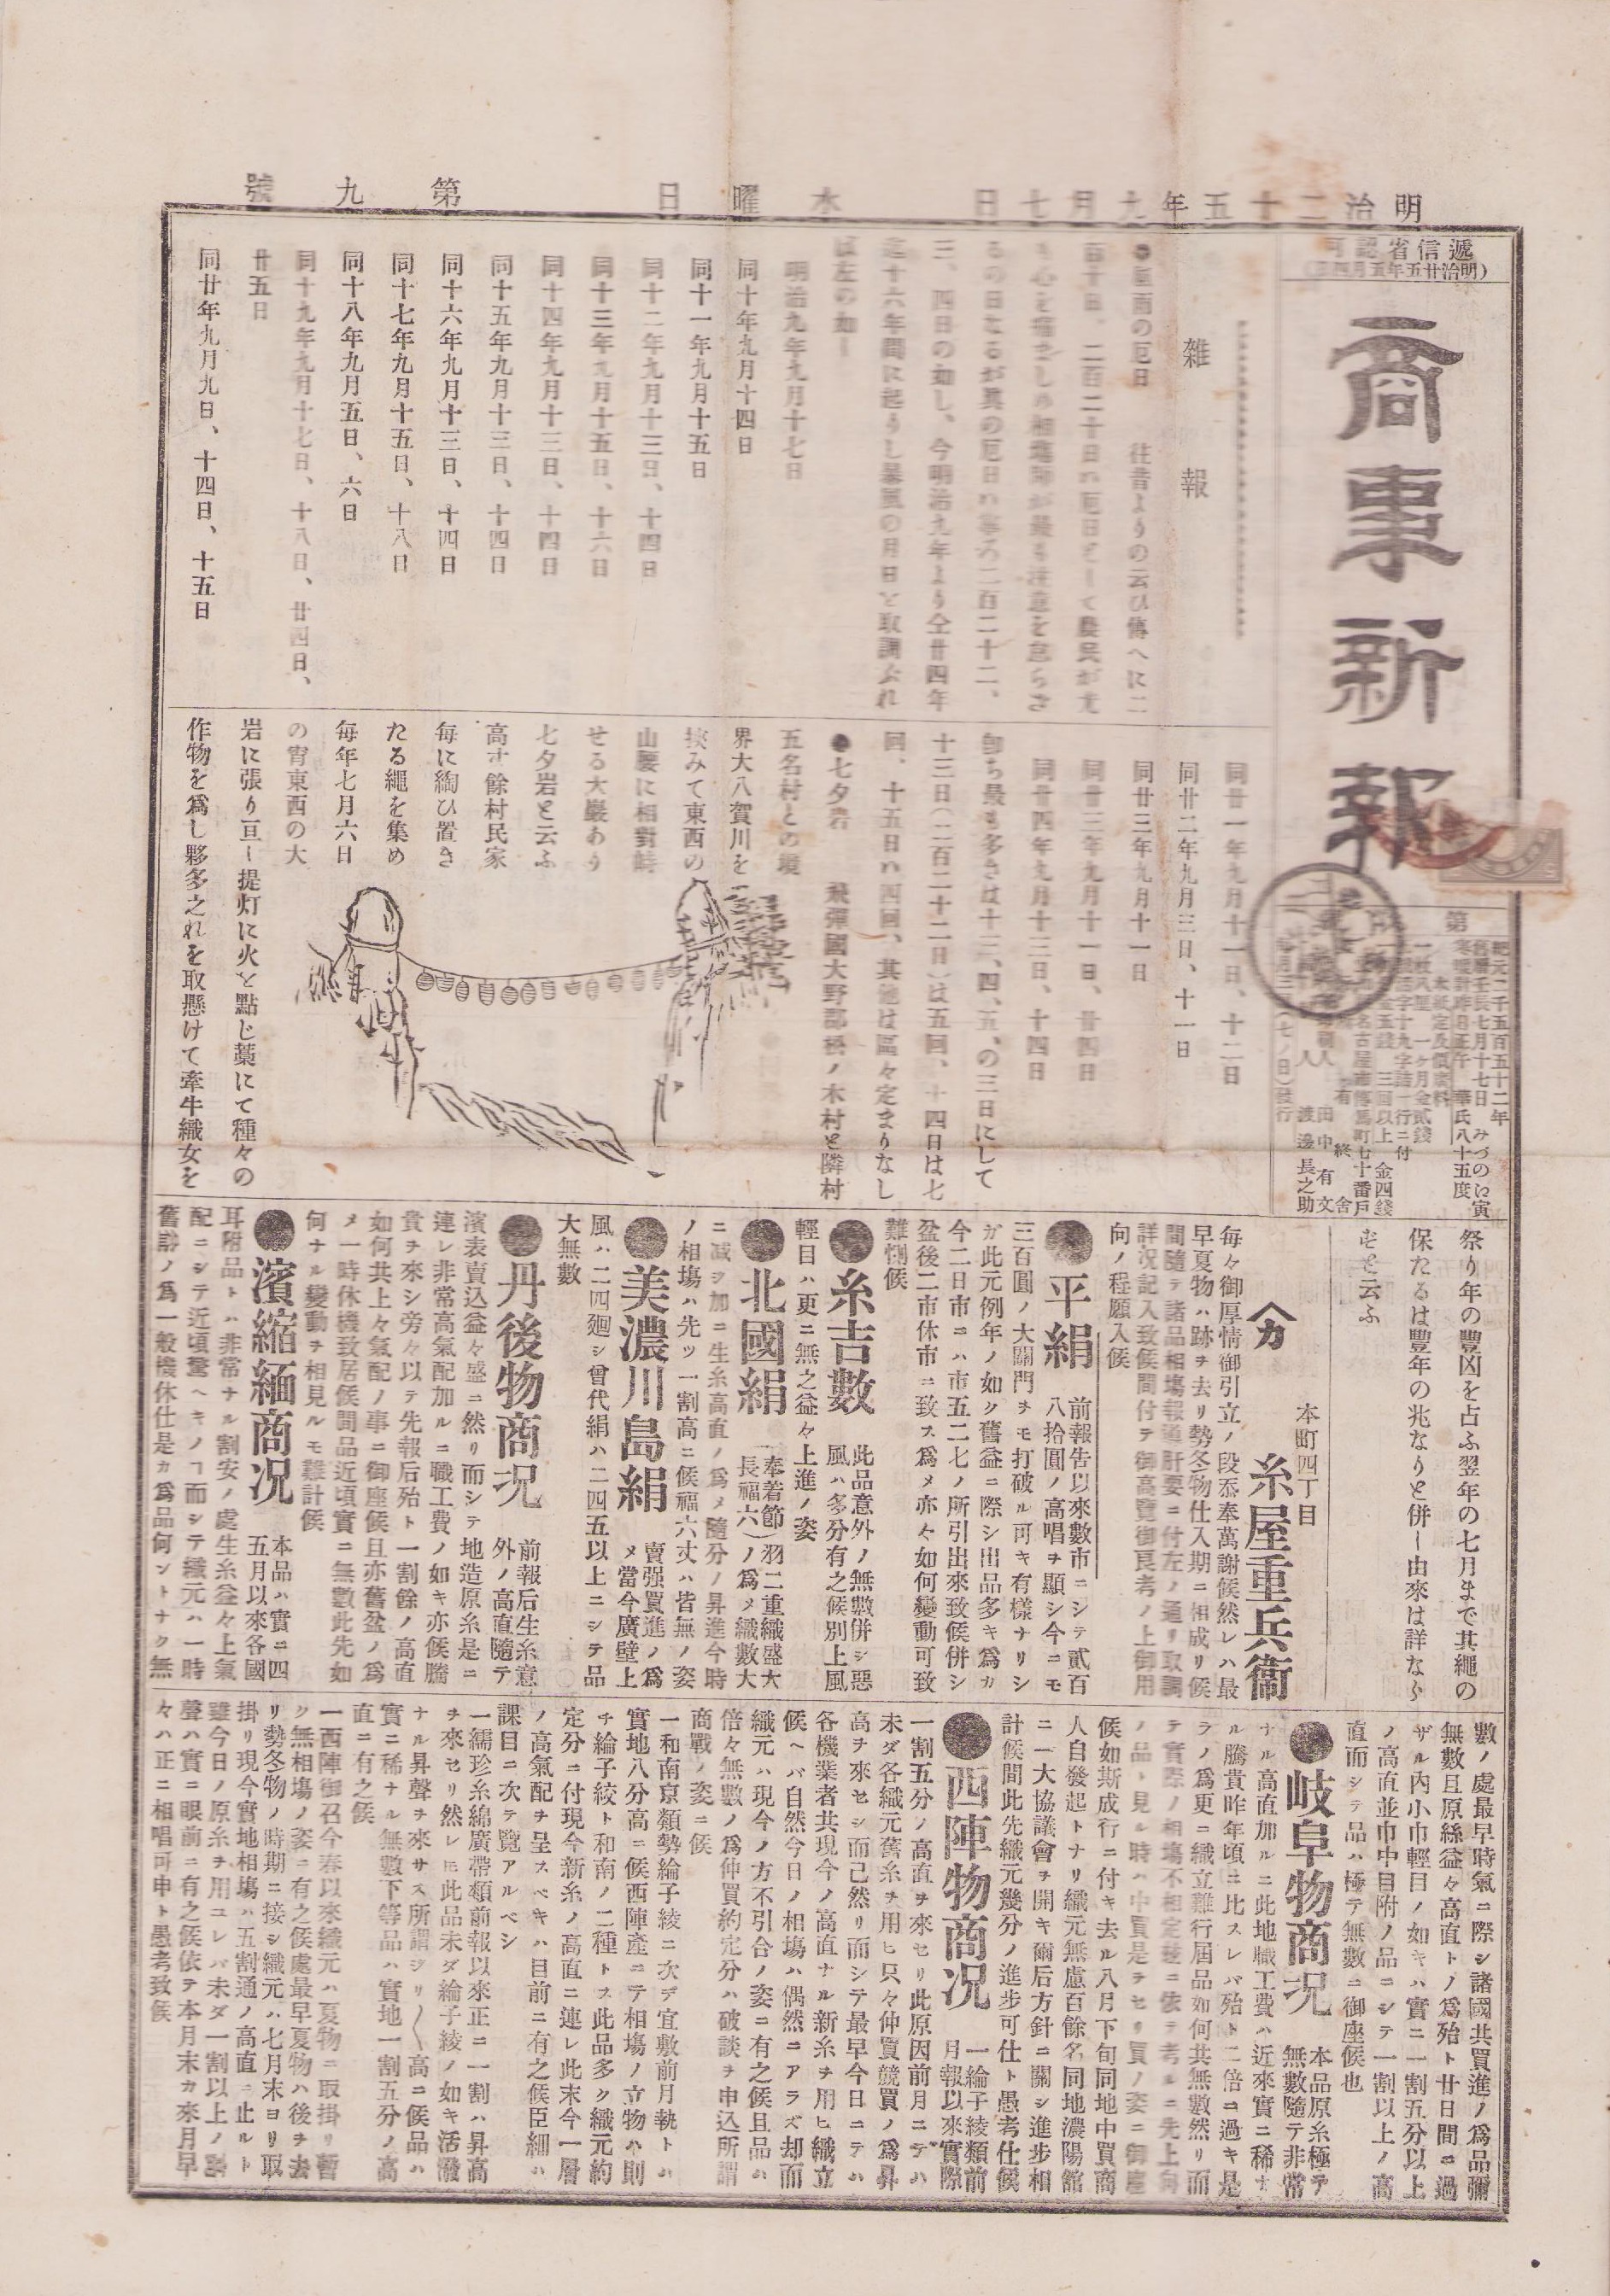 明治二十五年九月七日
水曜日
第九號
遞信省認可
(明治廿五年五月四日)
商事新報
第
紀元二千五百五十二年
舊曆壬辰七月十七日 みづのに寅
寒暖計昨日正午 華氏八十五度
本紙定及價廣料
一枚八厘 一ヶ月金貳錢
活字十九字詰一行ニ付
五錢 三回以上 金四錢
名古屋市傳馬町七十番戶
有終舍
田中有文
渡邊長之助
雜報
●風雨の厄日 往昔よりの云ひ傳へに二
百十日、二百二十日の厄日として農民が尤
も心を痛ましめ相塲師が最も注意を怠らさ
るの日なるが眞の厄日ハ寧ろ二百二十二、
三、四日の如し、今明治九年より仝廿四年
迄十六年間に起りし暴風の月日を取調ぶれ
ば左の如し
明治九年九月十七日
同十年九月十四日
同十一年九月十五日
同十二年九月十三日、十四日
同十三年九月十五日、十六日
同十四年九月十三日、十四日
同十五年九月十三日、十四日
同十六年九月十三日、十四日
同十七年九月十五日、十八日
同十八年九月五日、六日
同十九年九月十七日、十八日、廿四日、
廿五日
同廿年九月九日、十四日、十五日
同廿一年九月十一日、十二日
同廿二年九月三日、十一日
同廿三年九月十一日
同廿三年九月十一日、廿四日
同廿四年九月十三日、十四日
卽ち最も多きは十三、四、五、の三日にして
十三日(二百二十二日)は五回、十四日は七
回、十五日ハ四回、其他は區々定まりなし
●七夕岩 飛彈國大野郡松ノ木村と隣村
五名村との境
界大八賀川を
挾みて東西の
山腰に相對峙
せる大巖あり
七夕岩と云ふ
高サ餘村民家
每に綯ひ置き
たる繩を集め
每年七月六日
の宵東西の大
岩に張り亘し提灯に火を點じ藁にて種々の
作物を爲し夥多之れを取懸けて牽牛織女を
祭り年の豐凶を占ふ翌年の七月まで其繩の
保たるは豐年の兆なりと併し由來は詳なら
ずと云ふ
本町四丁目
カ 糸屋重兵衞
每々御厚情御引立ノ段忝奉萬謝候然レハ最
早夏物ハ跡チ去リ勢冬物仕入期ニ相成リ候
間隨テ諸品相塲報道肝要ニ付左ノ通リ取調
詳况記入致候間付テ御高覽御良考ノ上御用
向ノ程願入候
●平絹 前報告以來數市ニシテ貳百
八拾圓ノ高唱ヲ顯シ今ニモ
三百圓ノ大關門ヲモ打破ル可キ有樣ナリシ
ガ此元例年ノ如ク舊盆ニ際シ出品多キ爲カ
今二日市ニハ市五二七ノ所引出來致候併シ
盆後二市休市ニ致ス爲メ亦々如何變動可致
難慥候
●糸吉數 此品意外ノ無數併シ惡
風ハ多分有之候別上風
輕目ハ更ニ無之益々上進ノ姿
●北國絹 (奉着節)羽二重織盛大
(長福六)ノ爲メ織數大
ニ减ヲ加ニ生糸高直ノ爲メ隨分ノ昇進今時
ノ相塲ハ先ツ一割高ニ候福六丈ハ皆無ノ姿
●美濃川島絹 賣强買進ノ爲
メ當今廣壁上
風ハ二四廻シ曾代絹ハ二四五以上ニシテ品
大無數
●丹後物商况 前報后生糸意
外ノ高直隨テ
濱表賣込益々盛ニ然リ而シテ地造原糸是ニ
連レ非常高氣配加ルニ職工費ノ如キ亦候騰
貴チ來シ旁々以テ先報后殆ト一割餘ノ高直
如何共上々氣配ノ事ニ御座候且亦舊盆ノ爲
メ一時休機致居候間品近頃實ニ無數此先如
何ナル變動チ相見ルモ難計候
●濱縮緬商况 本品ハ實ニ四
五月以來各國
耳附品トハ非常ナル割安ノ處生糸益々上氣
配ニシテ近頃驚ヘキノヿ而シテ織元ハ一時
舊諸ノ爲一般機休仕是カ爲品何ントナク無
數ノ處最早時氣ニ際シ諸國共買進ノ爲品彌
無數且原絲益々高直トノ爲殆ト廿日間ニ過
ザル內小巾輕目ノ如キハ實ニ一割五分以上
ノ高直並巾中目附ノ品ニシテ一割以上ノ高
直而シテ品ハ極テ無數ニ御座候也
●岐阜物商况 本品原糸極テ
無數隨テ非常
ナル高直加ルニ此地職工費ハ近來實ニ稀ナ
ル騰貴昨年頃ニ比スレバ殆ト二倍ニ過キ是
ラノ爲更ニ織立難行屆品如何共無數然リ而
テ實際ノ相塲不相定玆ニ依テ考ルニ先上向
ノ品ト見ル時ハ中買是チセリ買ノ姿ニ御座
候如斯成行ニ付キ去ル八月下旬同地中買商
人自發起トナリ織元無慮百餘名同地濃陽舘
ニ一大協議會ヲ開キ爾后方針ニ關シ進步相
計候間此先織元幾分ノ進步可仕ト愚考仕候
●西陣物商况 一綸子綾類前
月報以來實際
一割五分ノ高直ヲ來セリ此原因前月ニテハ
未ダ各織元舊糸チ用ヒ只々仲買競買ノ爲昇
高チ來セシ而己然リ而シテ最早今日ニテハ
各機業者共現今ノ高直ナル新糸チ用ヒ織立
候ヘバ自然今日ノ相塲ハ偶然ニアラズ却而
織元ハ現今ノ方不引合ノ姿ニ有之候且品ハ
倍々無數ノ爲仲買約定分ハ破談チ申込所謂
商戰ノ姿ニ候
一和南京類勢綸子綾ニ次デ宜敷前月執トハ
實地八分高ニ候西陣產ニテ相塲ノ立物ハ則
チ綸子絞ト和南ノ二種トス此品多ク織元約
定分ニ付現今新糸ノ高直ニ連レ此末今一層
ノ高氣配チ呈スベキハ目前ニ有之候臣細ハ
課目ニ次テ覽アルベシ
一繻珍糸綿廣帶類前報以來正ニ一割ハ昇高
チ來セリ然レ𪜈此品未ダ綸子綾ノ如キ活潑
ナル昇聲チ來サス所謂ジリ〱高ニ候品ハ
實ニ稀ナル無數下等品ハ實地一割五分ノ高
直ニ有之候
一西陣御召今春以來織元ハ夏物ニ取掛リ暫
ク無相塲ノ姿ニ有之候處最早夏物ハ後チ去
リ勢冬物ノ時期ニ接シ織元ハ七月末ヨリ取
掛リ現今實地相塲ハ五割通ノ高直ニ止ルト
雖今日ノ原糸チ用ユレバ未ダ一割以上ノ聲
聲ハ實ニ眼前ニ有之候依テ本月末カ來月早
々ハ正ニ相唱可申ト愚考致候